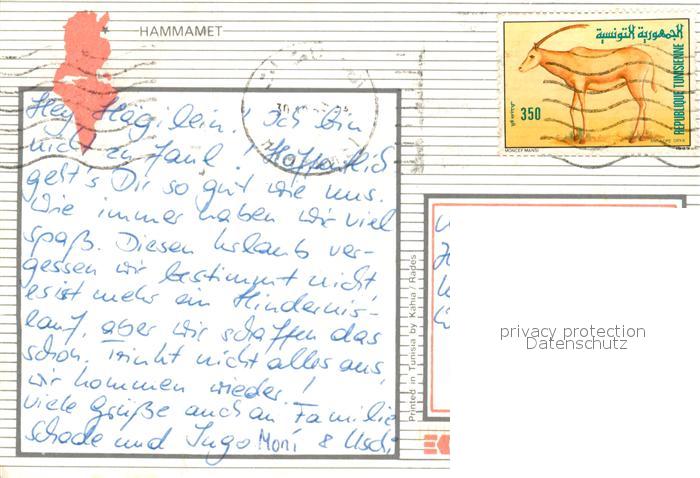 HAMMAMET
الجمهورية التونسية
REPUBLIQUE TUNISIENNE
350
MONCEF MANSI
Hey Hägilein! Ich bin
nicht zu faul! Hoffentlich
geht's Dir so gut wie uns.
Wie immer haben wir viel
spaß. Diesen Urlaub ver-
gessen wir bestimmt nicht,
es ist mehr ein Hindernis-
lauf, aber wir schaffen das
schon. Trinkt nicht alles aus,
wir kommen wieder!
Viele Grüße auch an Familie
Schade und Ingo Moni & Uschi
Printed in Tunisia by Kahia / Rades
privacy protection
Datenschutz